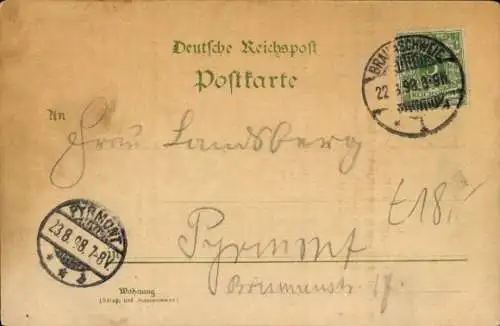 Deutsche Reichspost
Postkarte
BRAUNSCHWEIG
22.8.98.8-9N.
* 1 *
An
Frau Landsberg
t18,-
PYRMONT
23.8.98.7-8V.
* * 3
Pyrmont
17.
Wohnung
(Straße und Hausnummer)